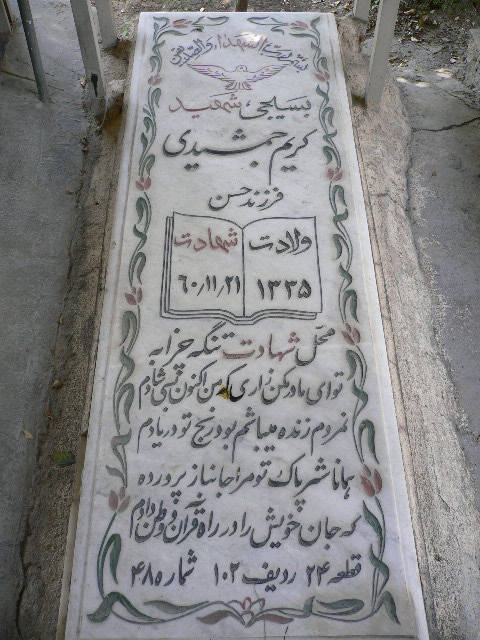 بسیجی شهید
کریم جمشیدی
فرزند حسن
ولادت شهادت
۱۳۳۵ ۶۰/۱۱/۲۱
محل شهادت تنگه چزابه
تو ای مادر مکن زاری که من اکنون بسی شادم
نمردم زنده میباشم بود رنج تو در یادم
همانا شیر پاک تو مرا جانباز پرورده
که جان خویش را در راه قرآن و وطن دادم
قطعه ۲۴ ردیف ۱۰۲ شماره ۴۸